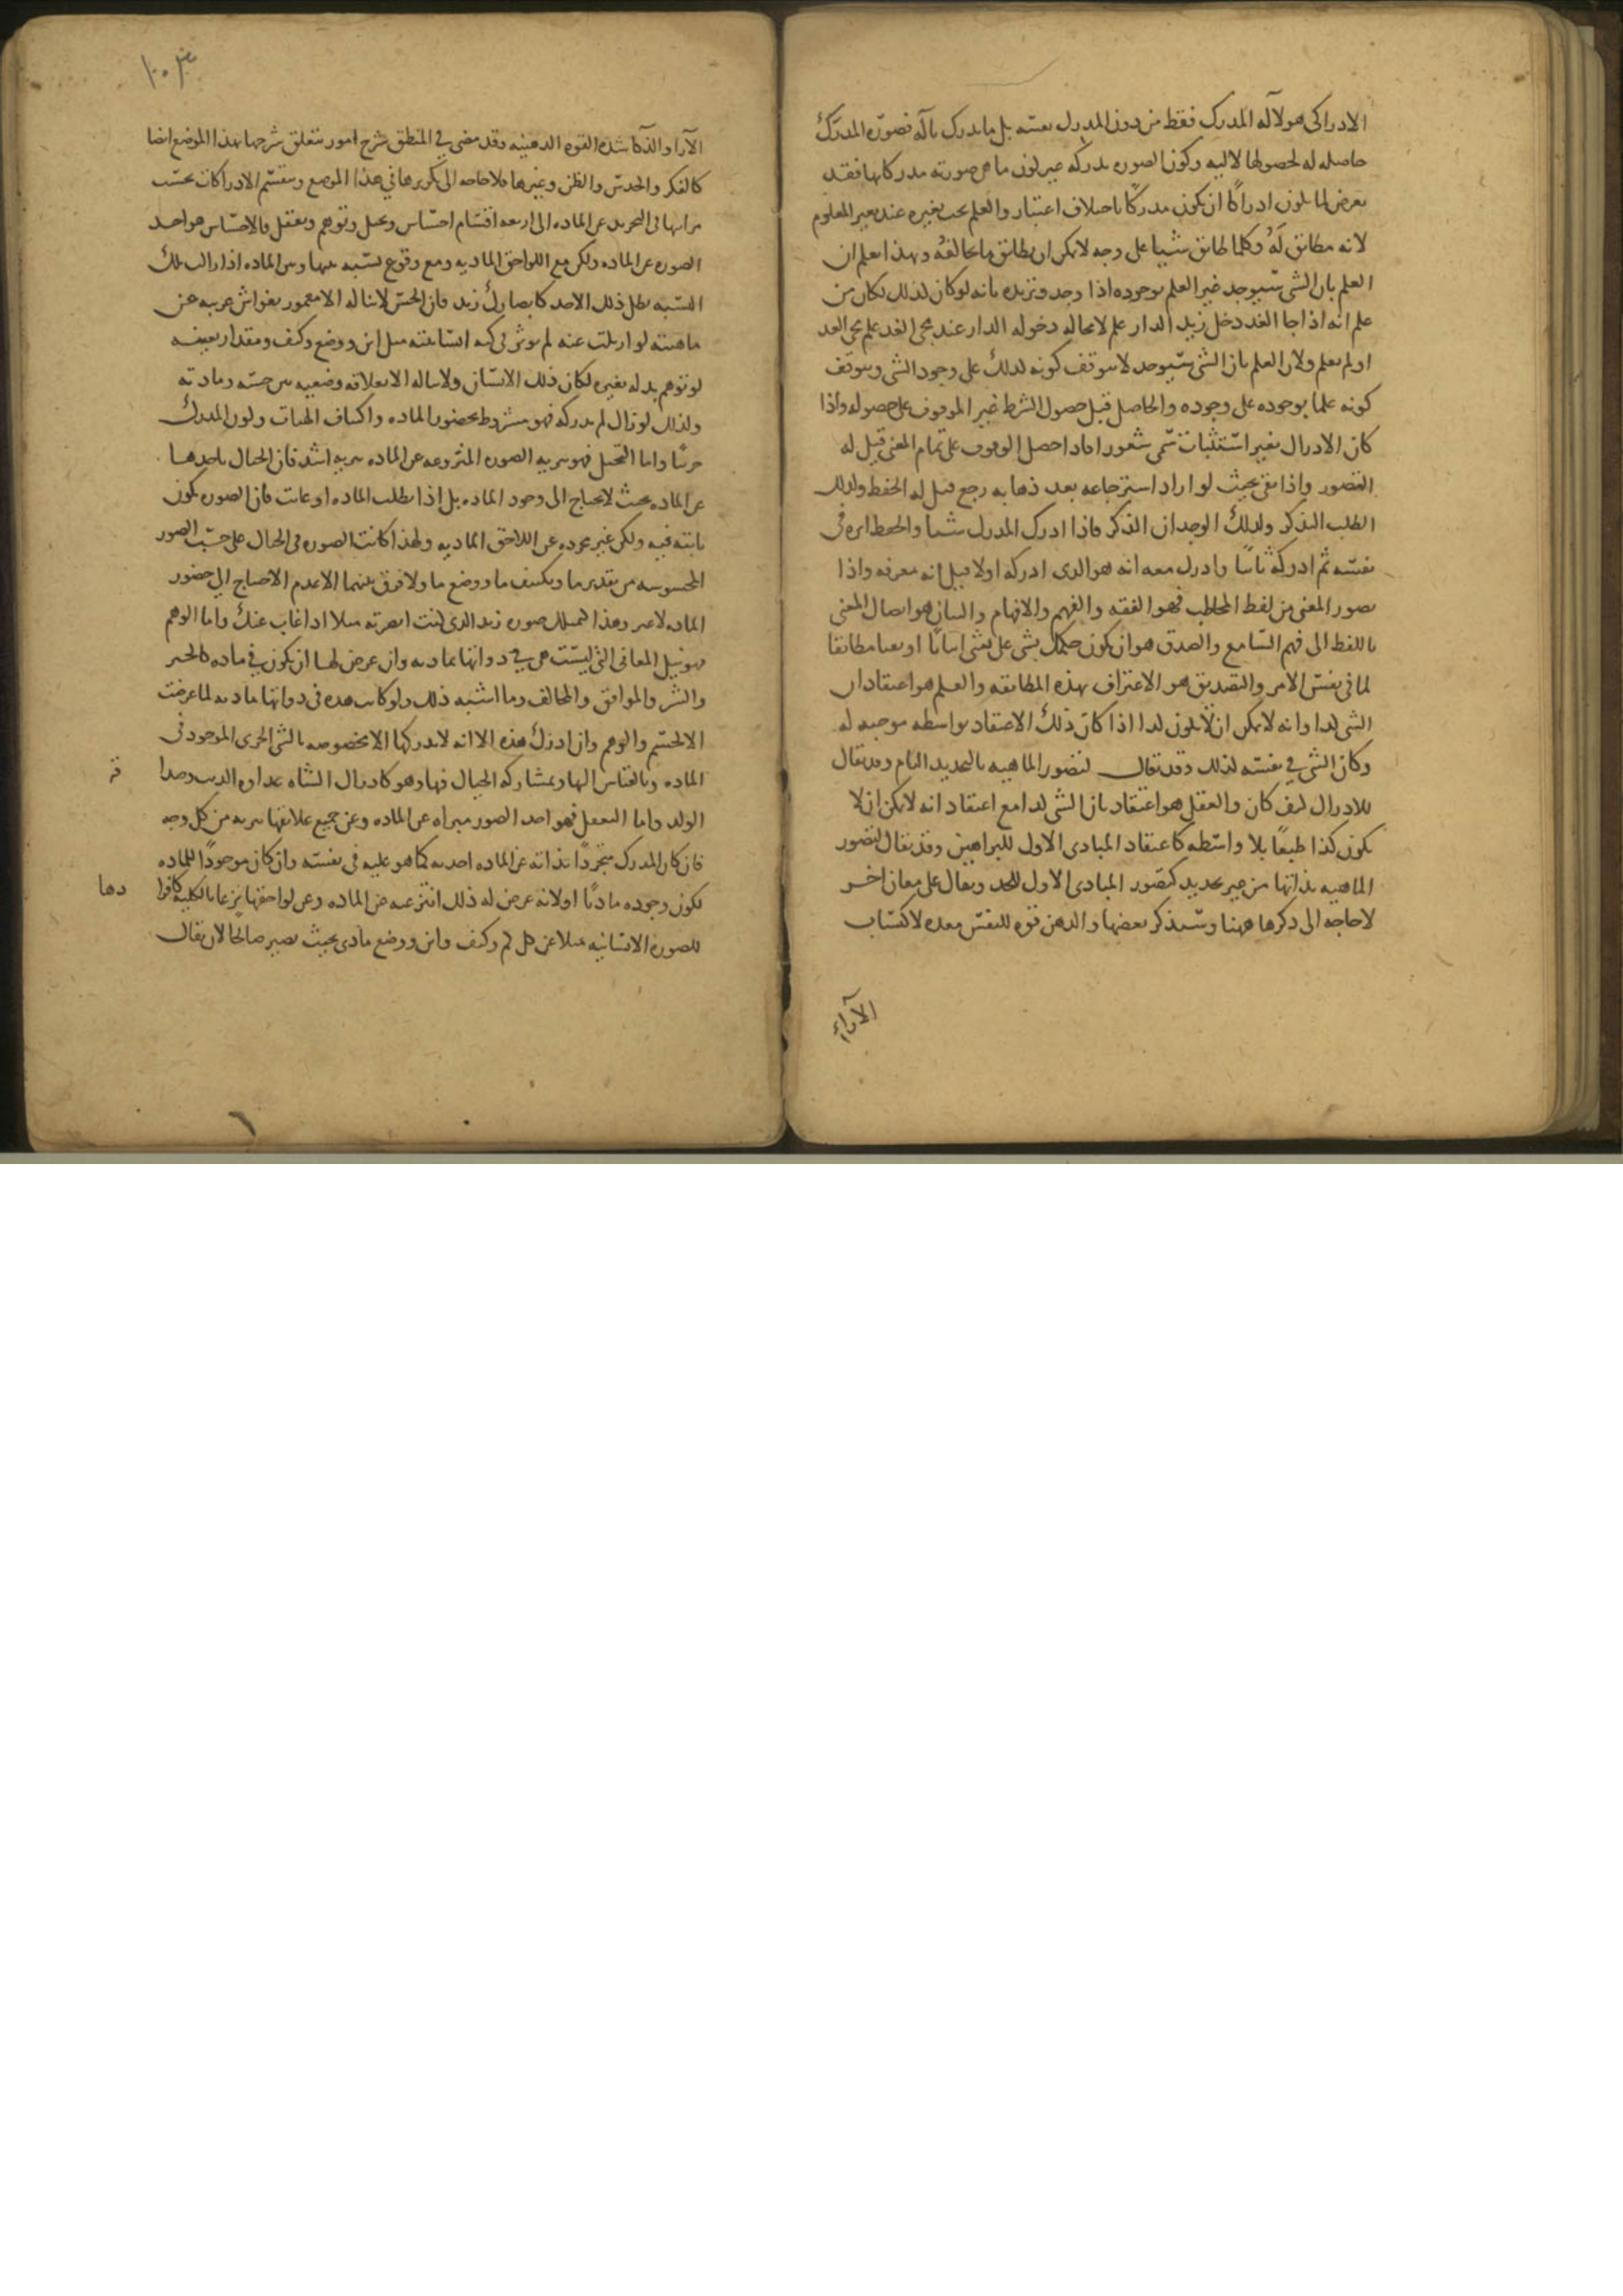 الادراكى هو لآله المدرك فقط من دون المدرك نفسه بل ما يدرك بآله فصورة المدرك
حاصله له لحصولها لاليه وكون الصوره مدركه غير كون ما هى صورته مدركا بها فقد
يعرض لما يكون ادراكا ان يكون مدركا باختلاف اعتبار والعلم يجب تغيره عند تغير المعلوم
لانه مطابق له وكلما طابق شيا على وجه لا يمكن ان يطابق ما يخالفه وبهذا يعلم ان
العلم بان الشى سيوجد غير العلم بوجوده اذا وجد ونزيده بانه لو كان كذلك لكان من
علم انه اذا جا الغد دخل زيد الدار علم لا محاله دخوله الدار عند مجى الغد علم مجى الغد
او لم يعلم ولان العلم بان الشى سيوجد لا يتوقف كونه كذلك على وجود الشى ويتوقف
كونه علما بوجوده على وجوده والحاصل قبل حصول الشرط غير الموقوف على حصوله واذا
كان الادراك بغير استثبات سمى شعورا فاذا حصل الوقوف على تمام المعنى قيل له
التصور واذا بقى بحيث لو اراد استرجاعه بعد ذهابه رجع قيل له الحفظ ولذلك
الطلب التذكر ولذلك الوجدان الذكر فاذا ادرك المدرك شيا وانحفظ اثره فى
نفسه ثم ادركه ثانيا وادرك معه انه هو الذى ادركه اولا قيل انه معرفه واذا
تصور المعنى من لفظ المخاطب فهو الفقه والفهم والافهام والبيان هو ايصال المعنى
باللفظ الى فهم السامع والصدق هو ان يكون حكمك بشى على شى اثباتا او نفيا مطابقا
لما فى نفس الامر والتصديق هو الاعتراف بهذه المطابقه والعلم هو اعتقاد ان
الشى كذا وانه لا يمكن ان لا يكون كذا اذا كان ذلك الاعتقاد بواسطه موجبه له
وكان الشى فى نفسه كذلك وقد يقال لتصور الماهيه بالتحديد التام وقد يقال
للادراك كيف كان والعقل هو اعتقاد بان الشى كذا مع اعتقاد انه لا يمكن ان لا
يكون كذا طبعا بلا واسطه كاعتقاد المبادى الاول للبراهين وقد يقال لتصور
الماهيه بذاتها من غير تحديد كتصور المبادى الاول للحد ويقال على معان اخر
لا حاجه الى ذكرها ههنا وسيذكر بعضها والذهن قوه للنفس معده لاكتساب
الآراء
١٠٣
الآرا والذكا شده القوه الذهنيه وقد مضى فى المنطق شرح امور يتعلق شرحها بهذا الموضع ايضا
كالفكر والحدس والظن وغيرها فلا حاجه الى تكريرها فى هذا الموضع وينقسم الادراكات بحسب
مراتبها فى التجريد عن الماده الى اربعه اقسام احساس وتخيل وتوهم وتعقل فالاحساس هو اخذ
الصوره عن الماده ولكن مع اللواحق الماديه ومع وقوع نسبه بينها وبين الماده اذا زالت تلك
النسبه بطل ذلك الاخذ كابصارك زيد فان الحس لا يناله الا مغمور بغواش غريبه عن
ماهيته لو ازيلت عنه لم يوثر فى كنه انسانيته مثل اين ووضع وكيف ومقدار بعينه
لو توهم بدله بغيره لكان ذلك الانسان ولا يناله الا بعلاقه وضعيه بين حسه ومادته
ولذلك لو زال لم يدركه فهو مشروط بحضور الماده واكتناف الهيات وكون المدرك
جزئيا واما التخيل فهو تبريه الصوره المنتزعه عن الماده تبريه اشد فان الخيال ياخذها
عن الماده بحيث لا يحتاج الى وجود الماده بل اذا بطلت الماده او غابت فان الصوره تكون
ثابته فيه ولكن غير مجرده عن اللاحق الماديه ولهذا كانت الصوره فى الخيال على حسب الصور
المحسوسه من تقدير ما وتكييف ما ووضع ما ولا فرق بينهما الا عدم الاحتياج الى حضور
الماده لا غير وهذا كتمثلك صوره زيد الذى كنت ابصرته مثلا اذا غاب عنك واما الوهم
فهو نيل المعانى التى ليست هى فى ذواتها بماديه وان عرض لها ان يكون فى ماده كالخير
والشر والموافق والمخالف وما اشبه ذلك ولو كانت هذه فى ذواتها ماديه لما عرضت
الا لجسم والوهم وان ادرك هذه الا انه لا يدركها الا مخصوصه بالشى الجزى الموجود فى
الماده وبالقياس اليها وبمشاركه الخيال فيها وهو كادراك الشاه عداوه الذيب وصدا
قه
الولد واما التعقل فهو اخذ الصور مبراه عن الماده وعن جميع علائقها تبريه من كل وجه
فان كان المدرك متجردا بذاته عن الماده اخذ به كما هو عليه فى نفسه وان كان موجودا للماده
لكون وجوده ماديا او لانه عرض له ذلك انتزعه عن الماده وعن لواحقها نزعا بالكليه كافرا
دها
للصوره الانسانيه مثلا عن كل كم وكيف واين ووضع مادى بحيث تصير صالحا لان يقال